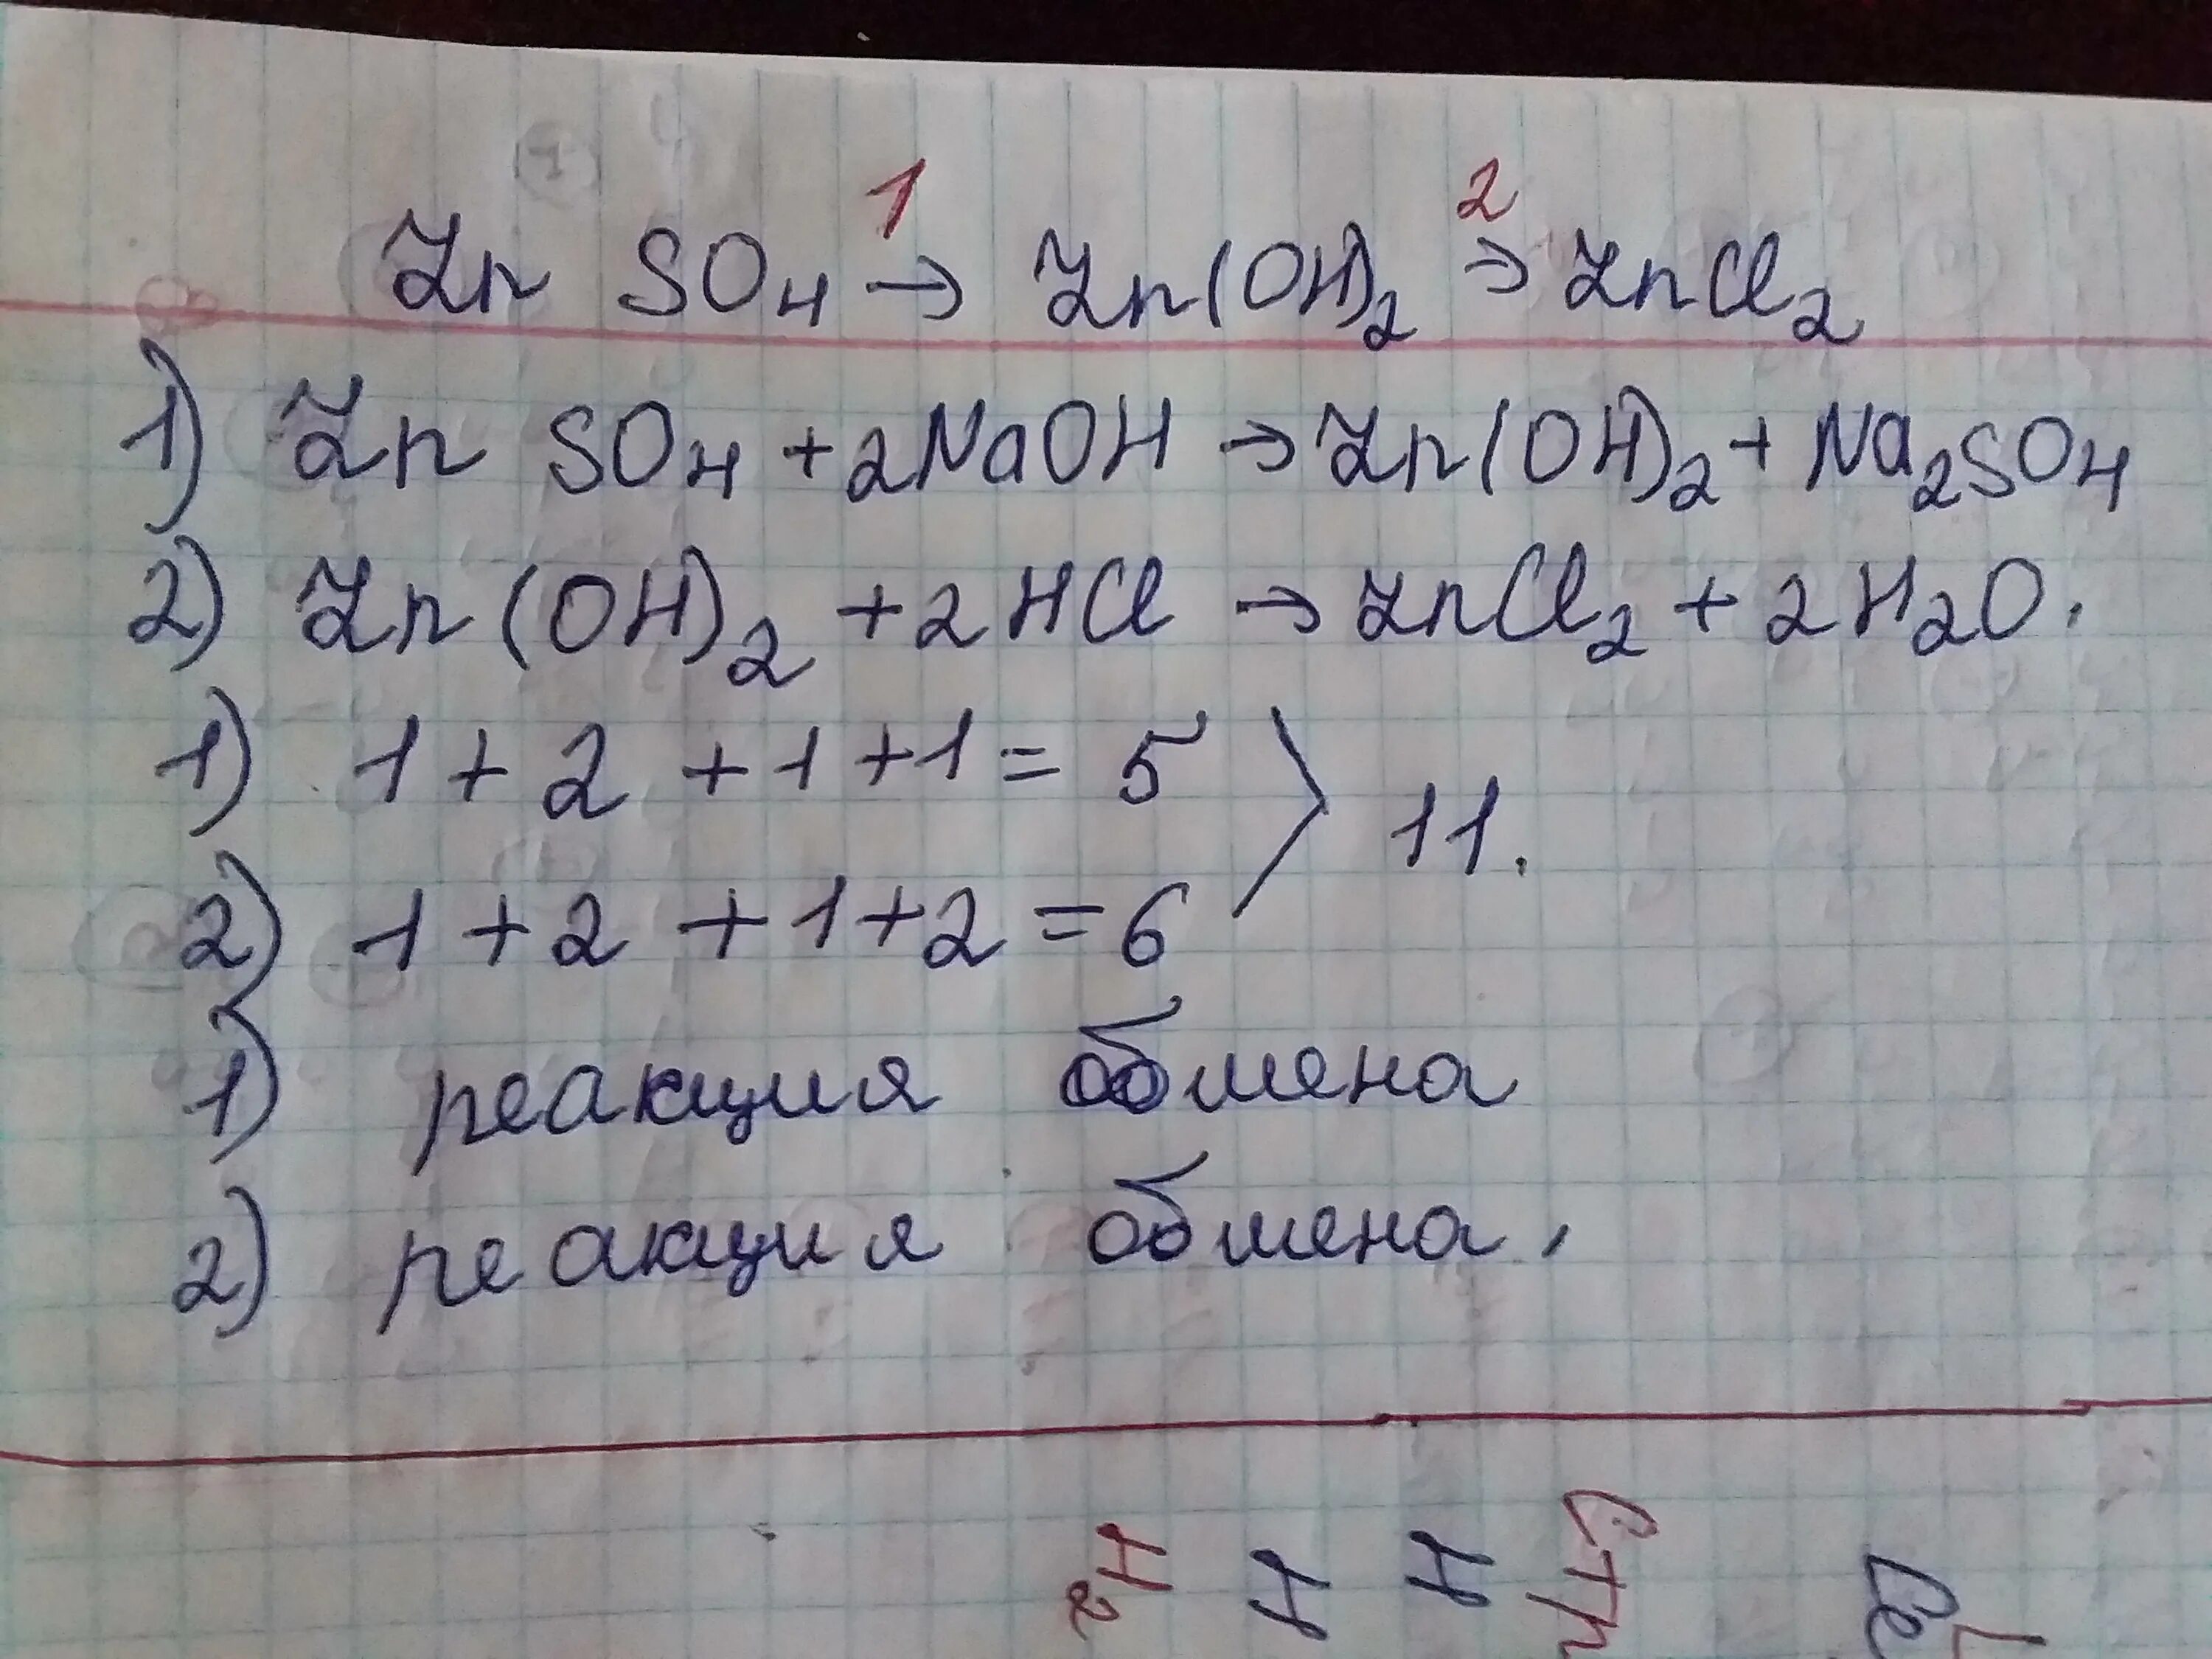 1 2
Zn SO₄ → Zn(OH)₂ → ZnCl₂
1) Zn SO₄ + 2NaOH → Zn(OH)₂ + Na₂SO₄
2) Zn(OH)₂ + 2HCl → ZnCl₂ + 2H₂O.
1) 1 + 2 + 1 + 1 = 5
11.
2) 1 + 2 + 1 + 2 = 6
1) реакция обмена
2) реакция обмена.